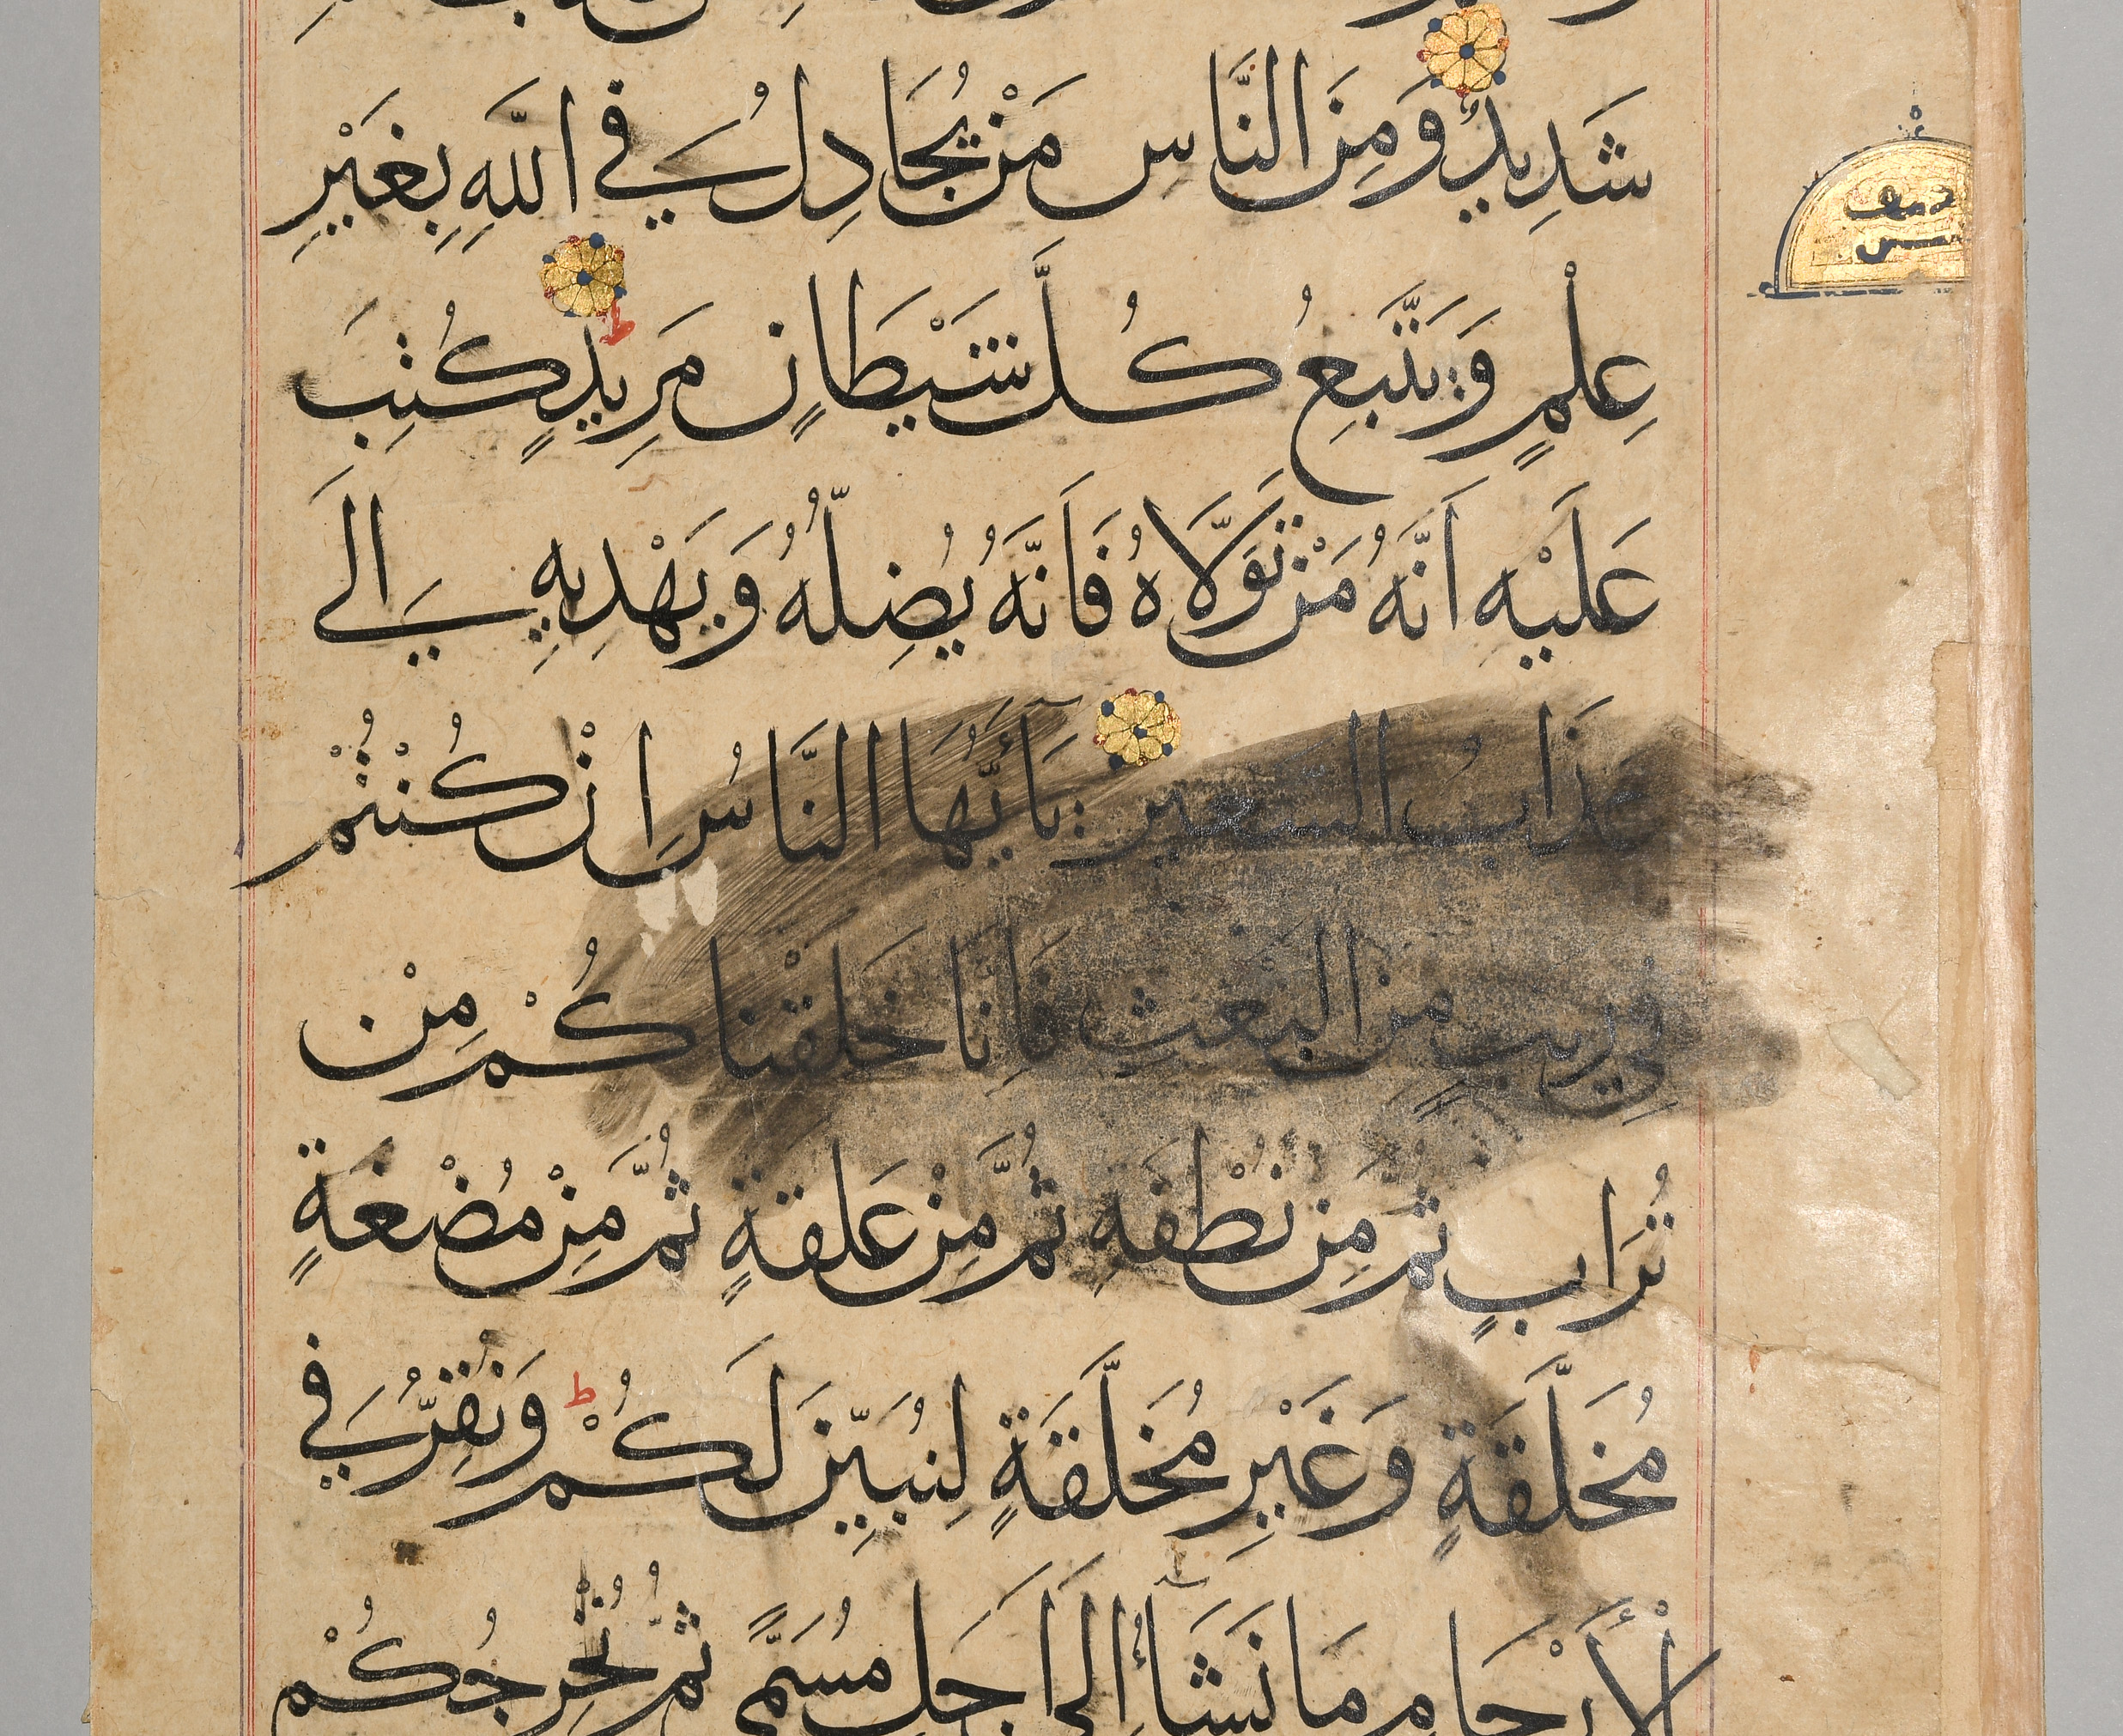 شَدِيدٌ وَمِنَ النَّاسِ مَنْ يُجَادِلُ فِي اللَّهِ بِغَيْرِ
عِلْمٍ وَيَتَّبِعُ كُلَّ شَيْطَانٍ مَرِيدٍ ط كُتِبَ
عَلَيْهِ اَنَّهُ مَنْ تَوَلَّاهُ فَاَنَّهُ يُضِلُّهُ وَيَهْدِيهِ اِلَى
عَذَابِ السَّعِيرِ يَآ اَيُّهَا النَّاسُ اِنْ كُنْتُمْ
فِي رَيْبٍ مِنَ الْبَعْثِ فَاِنَّا خَلَقْنَاكُمْ مِنْ
تُرَابٍ ثُمَّ مِنْ نُطْفَةٍ ثُمَّ مِنْ عَلَقَةٍ ثُمَّ مِنْ مُضْغَةٍ
مُخَلَّقَةٍ وَغَيْرِ مُخَلَّقَةٍ لِنُبَيِّنَ لَكُمْ ط وَنُقِرُّ فِي
الْأَرْحَامِ مَا نَشَاءُ اِلَى اَجَلٍ مُسَمًّى ثُمَّ نُخْرِجُكُمْ